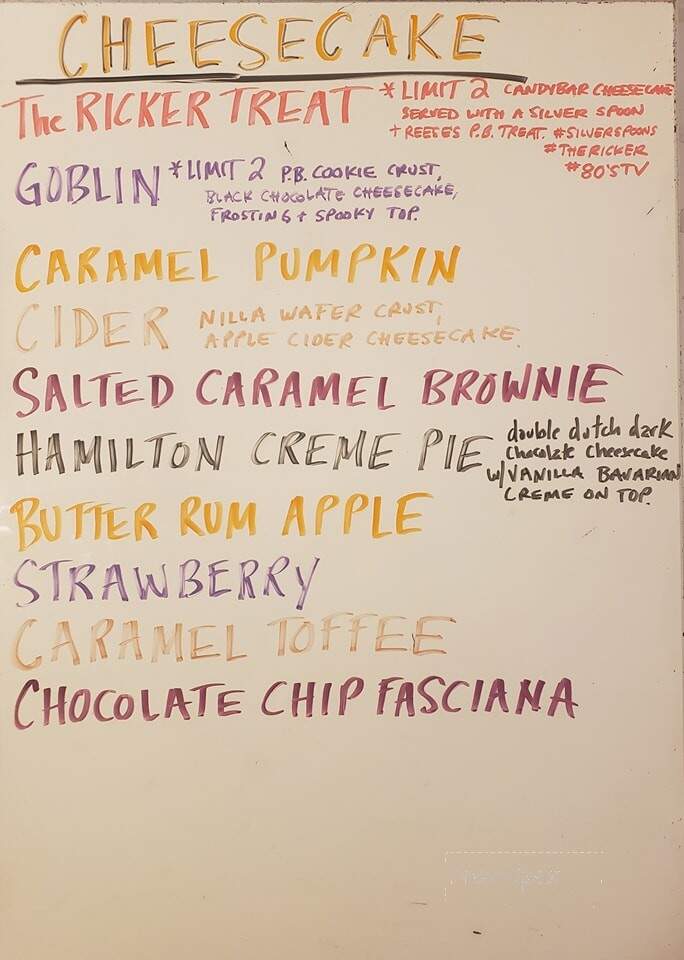 CHEESECAKE
The RICKER TREAT *LIMIT 2 CANDYBAR CHEESECAKE
SERVED WITH A SILVER SPOON
+ REESE'S P.B. TREAT. #SILVERSPOONS
#THERICKER
#80'STV
GOBLIN *LIMIT 2 P.B. COOKIE CRUST,
BLACK CHOCOLATE CHEESECAKE,
FROSTING + SPOOKY TOP.
CARAMEL PUMPKIN
CIDER NILLA WAFER CRUST,
APPLE CIDER CHEESECAKE.
SALTED CARAMEL BROWNIE
HAMILTON CREME PIE double dutch dark
Chocolate Cheesecake
W/VANILLA BAVARIAN
CREME ON TOP.
BUTTER RUM APPLE
STRAWBERRY
CARAMEL TOFFEE
CHOCOLATE CHIP FASCIANA